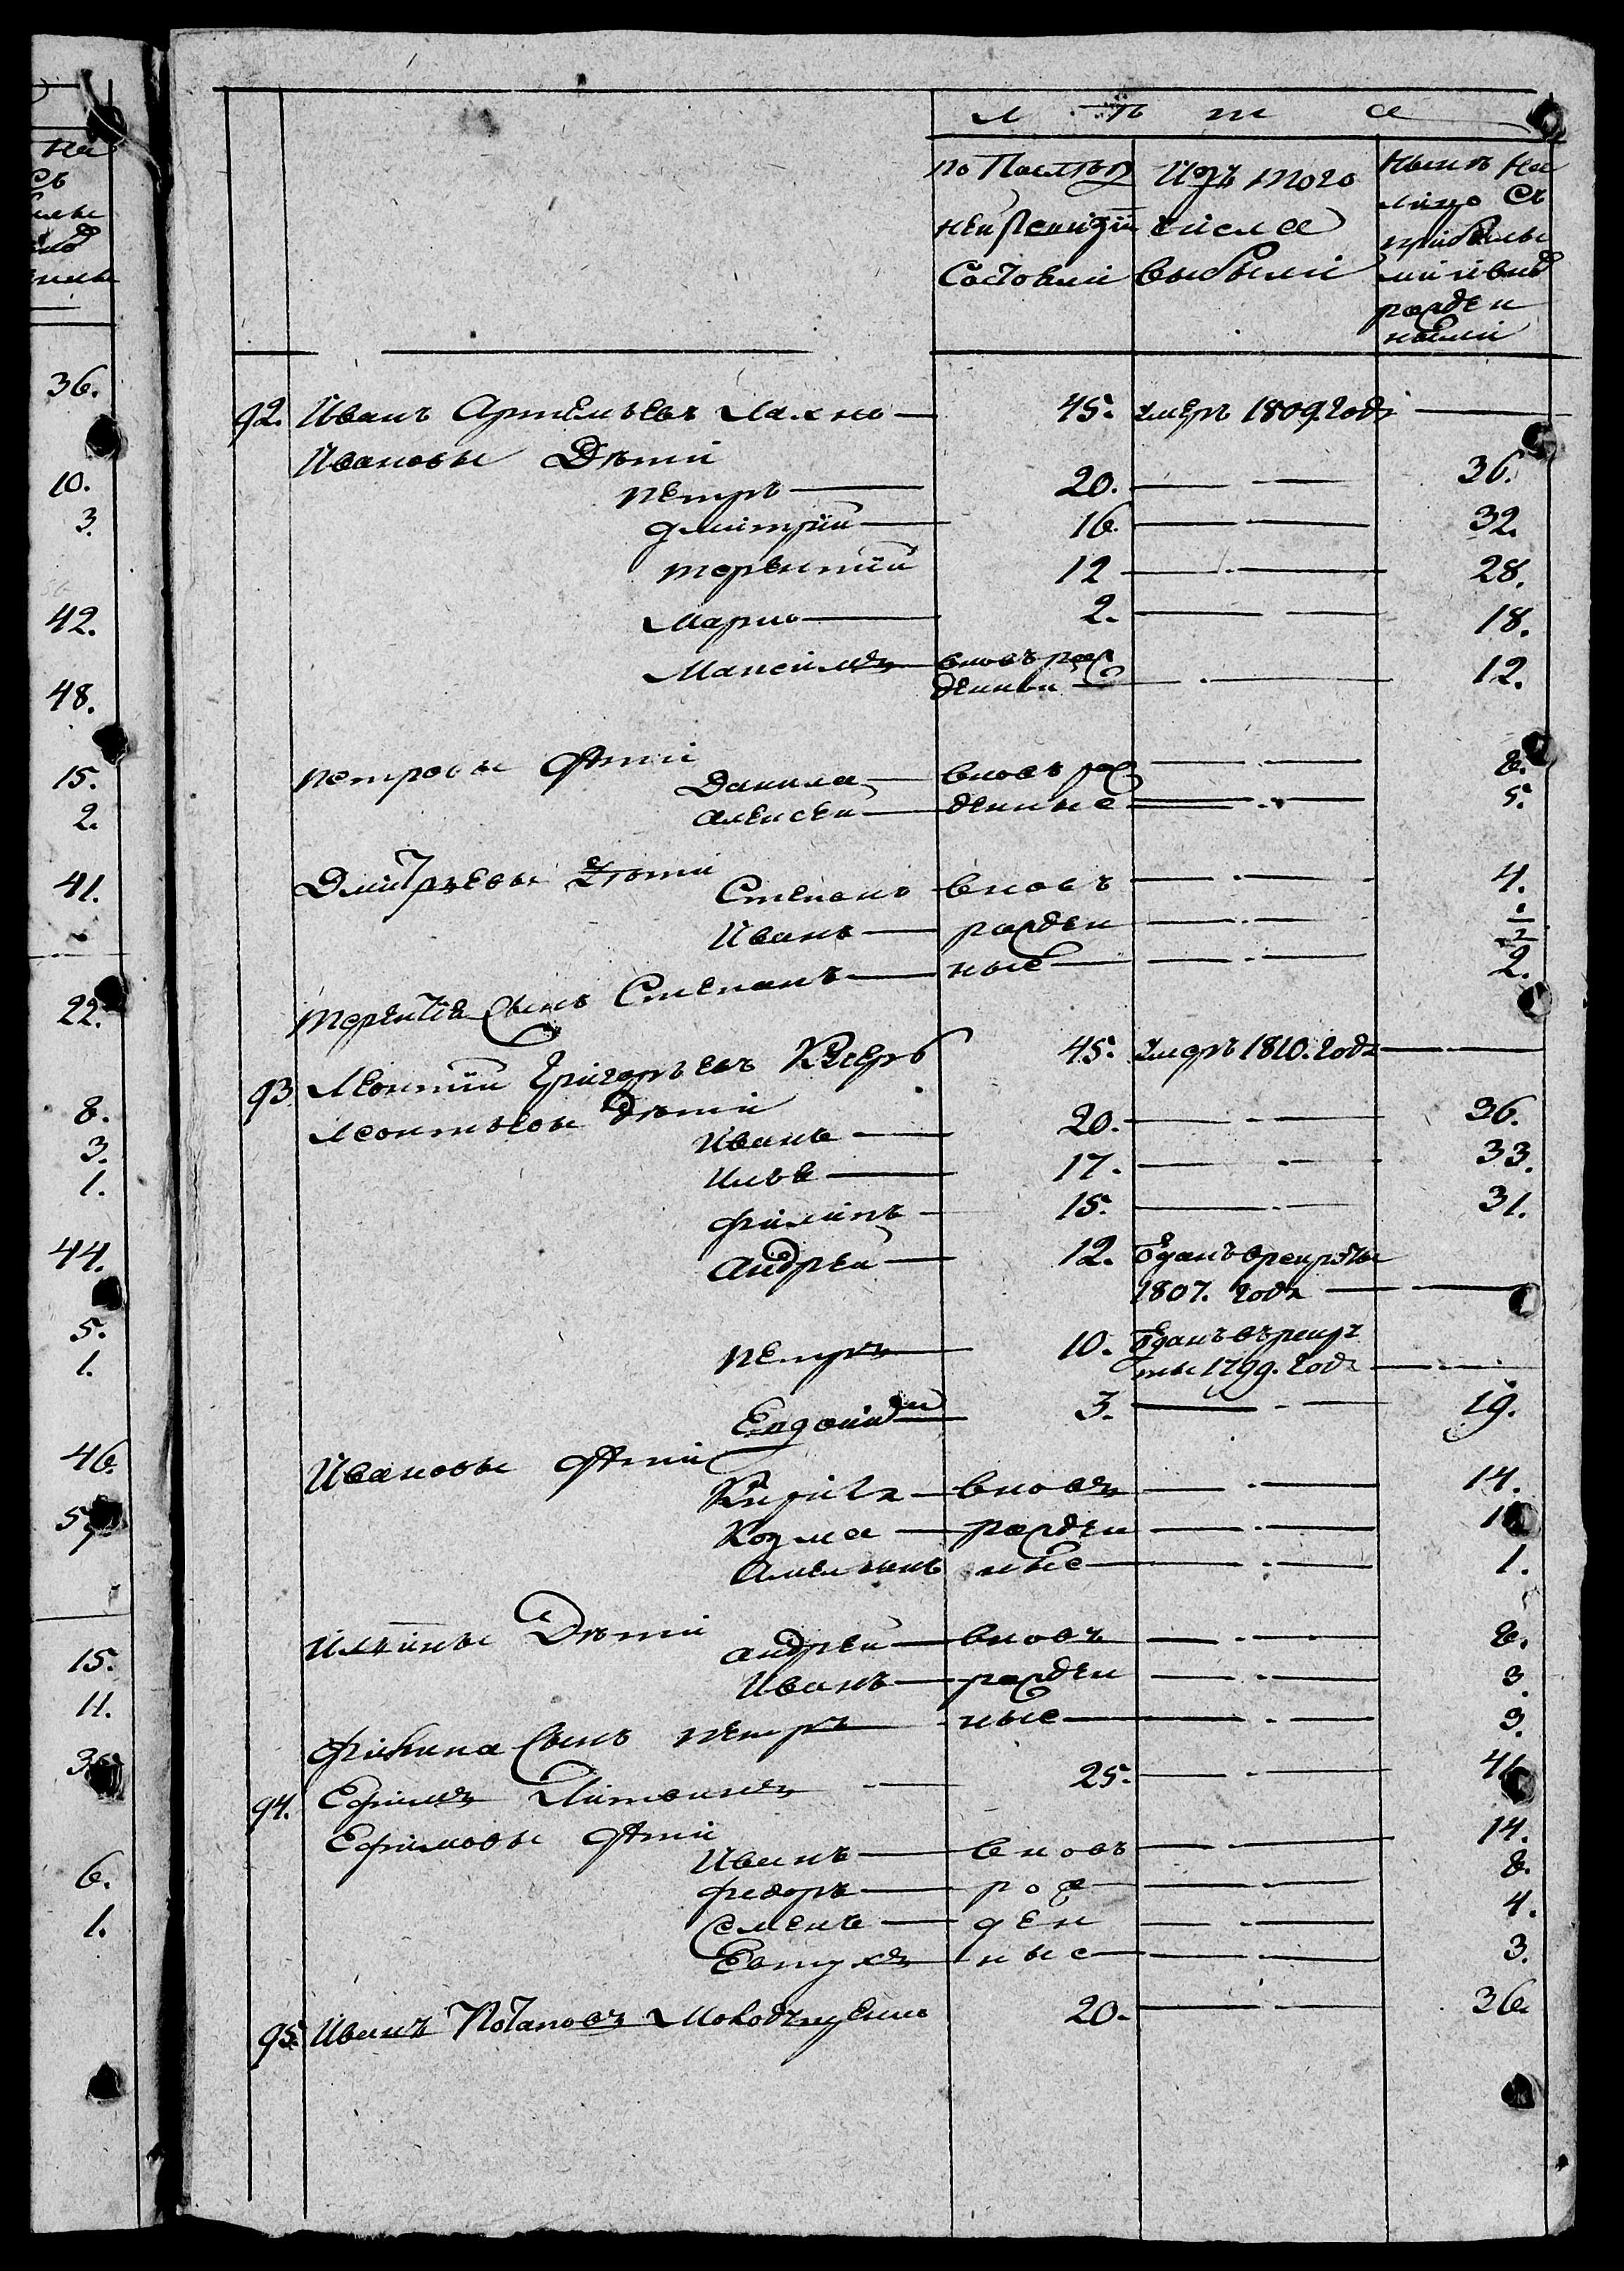 лѣта
по Послѣд Изъ того Нынѣ на
ней Ревизіи числа лицо Съ
Состояли выбыли прибылы
ми и внов
рожден
ными
92. Иванъ Артемьевъ Махно 45. умеръ 1809. Года
Ивановы Дѣти
Петръ 20. 36.
Дмитрій 16. 32.
Терентій 12 28.
Марко 2. 18.
Максимъ вновь рож
денный 12.
Петровы дѣти
Данила вновь рож 8.
Алексей денные 5.
Дмитрьевы дѣти
Степанъ вновь 4.
Иванъ рожден 1/2
Терентья Сынъ Степанъ ные 2.
93. Леонтий Григорьевъ 45. умеръ 1810. Года
Леонтьевы Дѣти
Иванъ 20. 36.
Илья 17. 33.
Филипъ 15. 31.
Андрей 12. Зданъ в рекруты
1807. Года
Петръ 10. Зданъ въ рекру
ты 1799. Года
3. 19.
Ивановы дѣти
Кирила вновь 14.
Козма рожден
Амельянъ ные 1.
Ильины Дѣти
Андрей вновь 8.
Иванъ рожден 3.
Филипа Сынъ Петръ ные 3.
94. Ефимъ Литвинъ 25. 41.
Ефимовы дѣти
Иванъ вновь 14.
Федоръ рож 8.
Семенъ ден 4.
Евтухъ ные 3.
95. Иванъ Потаповъ 20. 36.
на
Съ
36.
10.
3.
42.
48.
15.
2.
41.
22.
8.
3.
1.
44.
5.
1.
46.
15.
11.
6.
1.